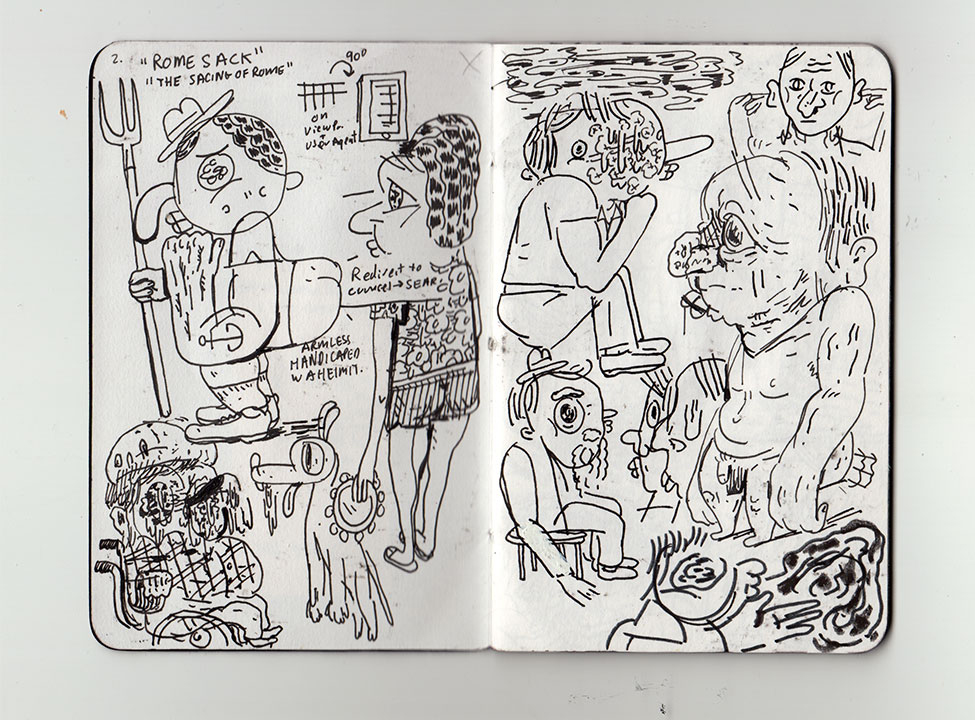 2. "ROME SACK"
"THE SACING OF ROME"
90°
on
Viewp..
+
User Agent
Redirect to
→ SEAR
ARMLESS
HANDICAPED
W A HEIMIT.